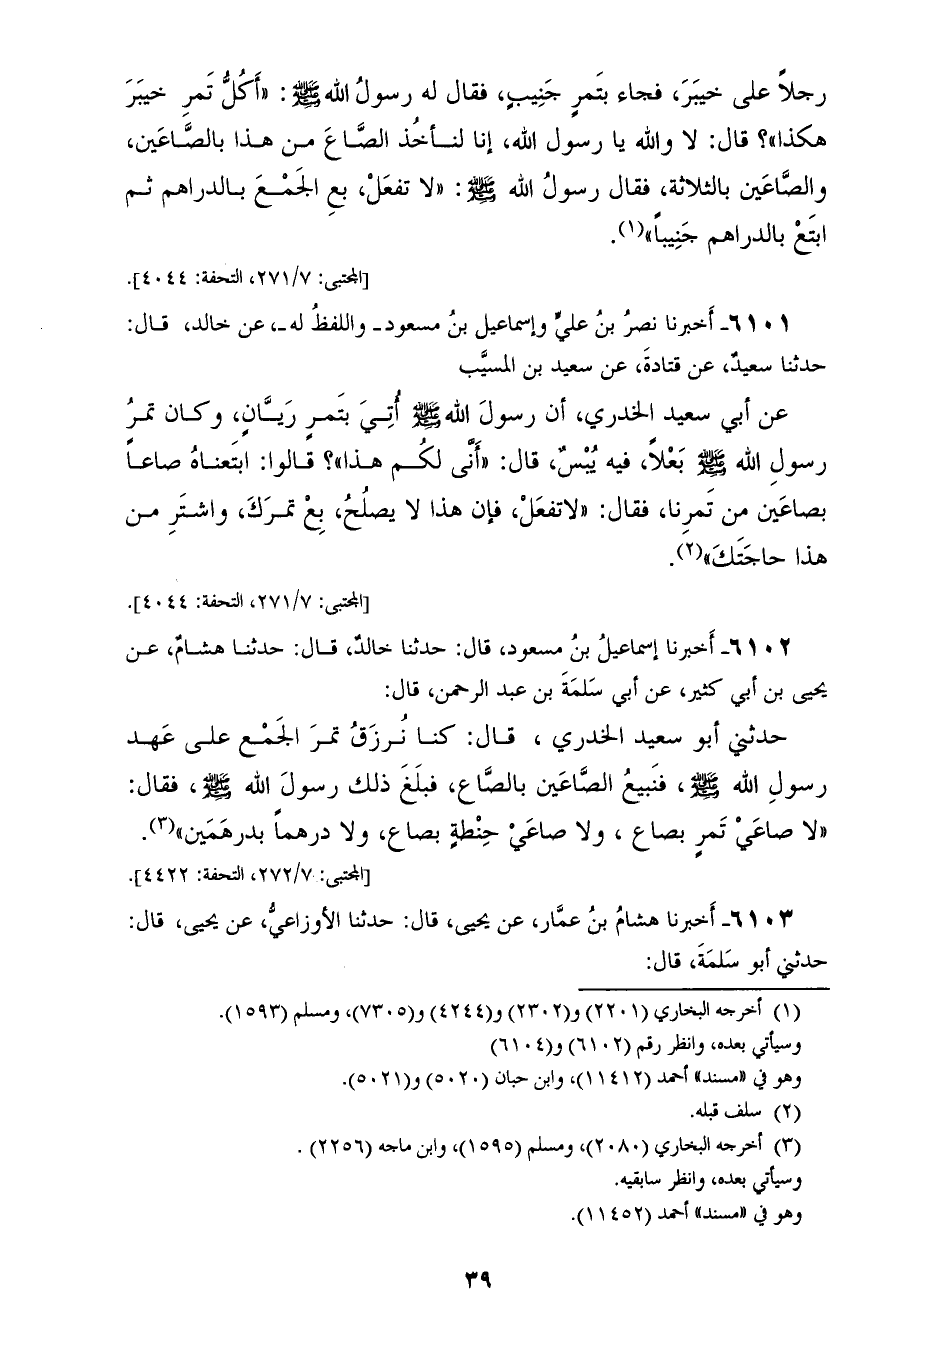 رجلاً على خيبَرَ، فجاء بتَمرٍ جَنِيبٍ، فقال له رسولُ الله ﷺ: «أَكُلُّ تَمرِ خيبَرَ
هكذا»؟ قال: لا والله يا رسول الله، إنا لنــأخُذ الصَّاعَ مـن هـذا بالصَّاعَين،
والصَّاعَين بالثلاثة، فقال رسولُ الله ﷺ: «لا تفعَلْ، بعِ الجَمْـعَ بـالدراهم ثـم
ابتَعْ بالدراهم جَنِيباً»(١).
[المجتبى: ٢٧١/٧، التحفة: ٤٠٤٤].
٦١٠١ـ أَخبرنا نصرُ بنُ عليٍّ وإسماعيل بنُ مسعود ـ واللفظُ له ـ، عن خالد، قـال:
حدثنا سعيدٌ، عن قتادةَ، عن سعيد بن المسيَّب
عن أبي سعيد الخدري، أن رسولَ الله ﷺ أُتِـيَ بتَمـرٍ رَيَّـانٍ، وكـان تمـرُ
رسولِ الله ﷺ بَعْلاً، فيه يُبْسٌ، قال: «أَنَّى لكُـم هـذا»؟ قـالوا: ابتَعنـاهُ صاعـاً
بصاعَين من تَمرِنا، فقال: «لاتفعَلْ، فإن هذا لا يصلُحُ، بِعْ تمـرَكَ، واشـتَرِ مـن
هذا حاجَتَكَ»(٢).
[المجتبى: ٢٧١/٧، التحفة: ٤٠٤٤].
٦١٠٢ـ أَخبرنا إسماعيلُ بنُ مسعود، قال: حدثنا خالدٌ، قـال: حدثنـا هشـامٌ، عـن
يحيى بن أبي كثير، عن أبي سَلمَةَ بن عبد الرحمن، قال:
حدثني أبو سعيد الخدري ، قـال: كنـا نُرزَقُ تمـرَ الجَمْـع علـى عَهـد
رسولِ الله ﷺ، فنَبيعُ الصَّاعَين بالصَّاع، فبلَغَ ذلك رسولَ الله ﷺ، فقال:
«لا صاعَيْ تَمرٍ بصاع ، ولا صاعَيْ حِنْطةٍ بصاع، ولا درهماً بدرهَمَين»(٣).
[المجتبى: ٢٧٢/٧، التحفة: ٤٤٢٢].
٦١٠٣ـ أَخبرنا هشامُ بنُ عمَّار، عن يحيى، قال: حدثنا الأوزاعيُّ، عن يحيى، قال:
حدثني أبو سَلمَةَ، قال:
(١) أخرجه البخاري (٢٢٠١) و(٢٣٠٢) و(٤٢٤٤) و(٧٣٠٥)، ومسلم (١٥٩٣).
وسيأتي بعده، وانظر رقم (٦١٠٢) و(٦١٠٤)
وهو في «مسند» أحمد (١١٤١٢)، وابن حبان (٥٠٢٠) و(٥٠٢١).
(٢) سلف قبله.
(٣) أخرجه البخاري (٢٠٨٠)، ومسلم (١٥٩٥)، وابن ماجه (٢٢٥٦) .
وسيأتي بعده، وانظر سابقيه.
وهو في «مسند» أحمد (١١٤٥٢).
٣٩